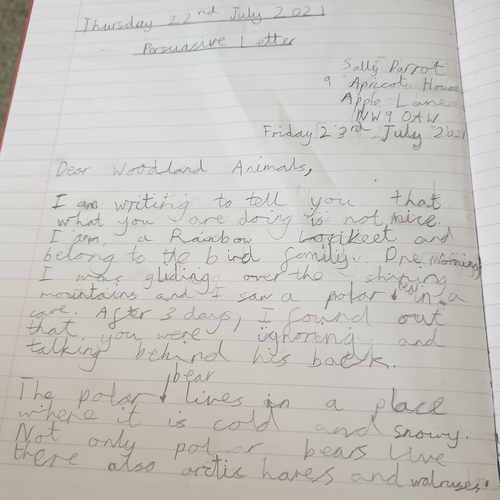 Thursday 22nd July 2021
Persuasive Letter
Sally Parrot
9 Apricots House
Apple Lane
NW9 0AW
Friday 23rd July 2021
Dear Woodland Animals,
I am writing to tell you that
what you are doing is not nice.
I am a Rainbow Lorikeet and
belong to the bird family. One morning
I was gliding over the shining
mountains and I saw a polar bear in a
cave. After 3 days, I found out
that you were ignoring and
talking behind his back.
The polar bear lives in a place
where it is cold and snowy.
Not only polar bears live
there also arctic hares and walruses.